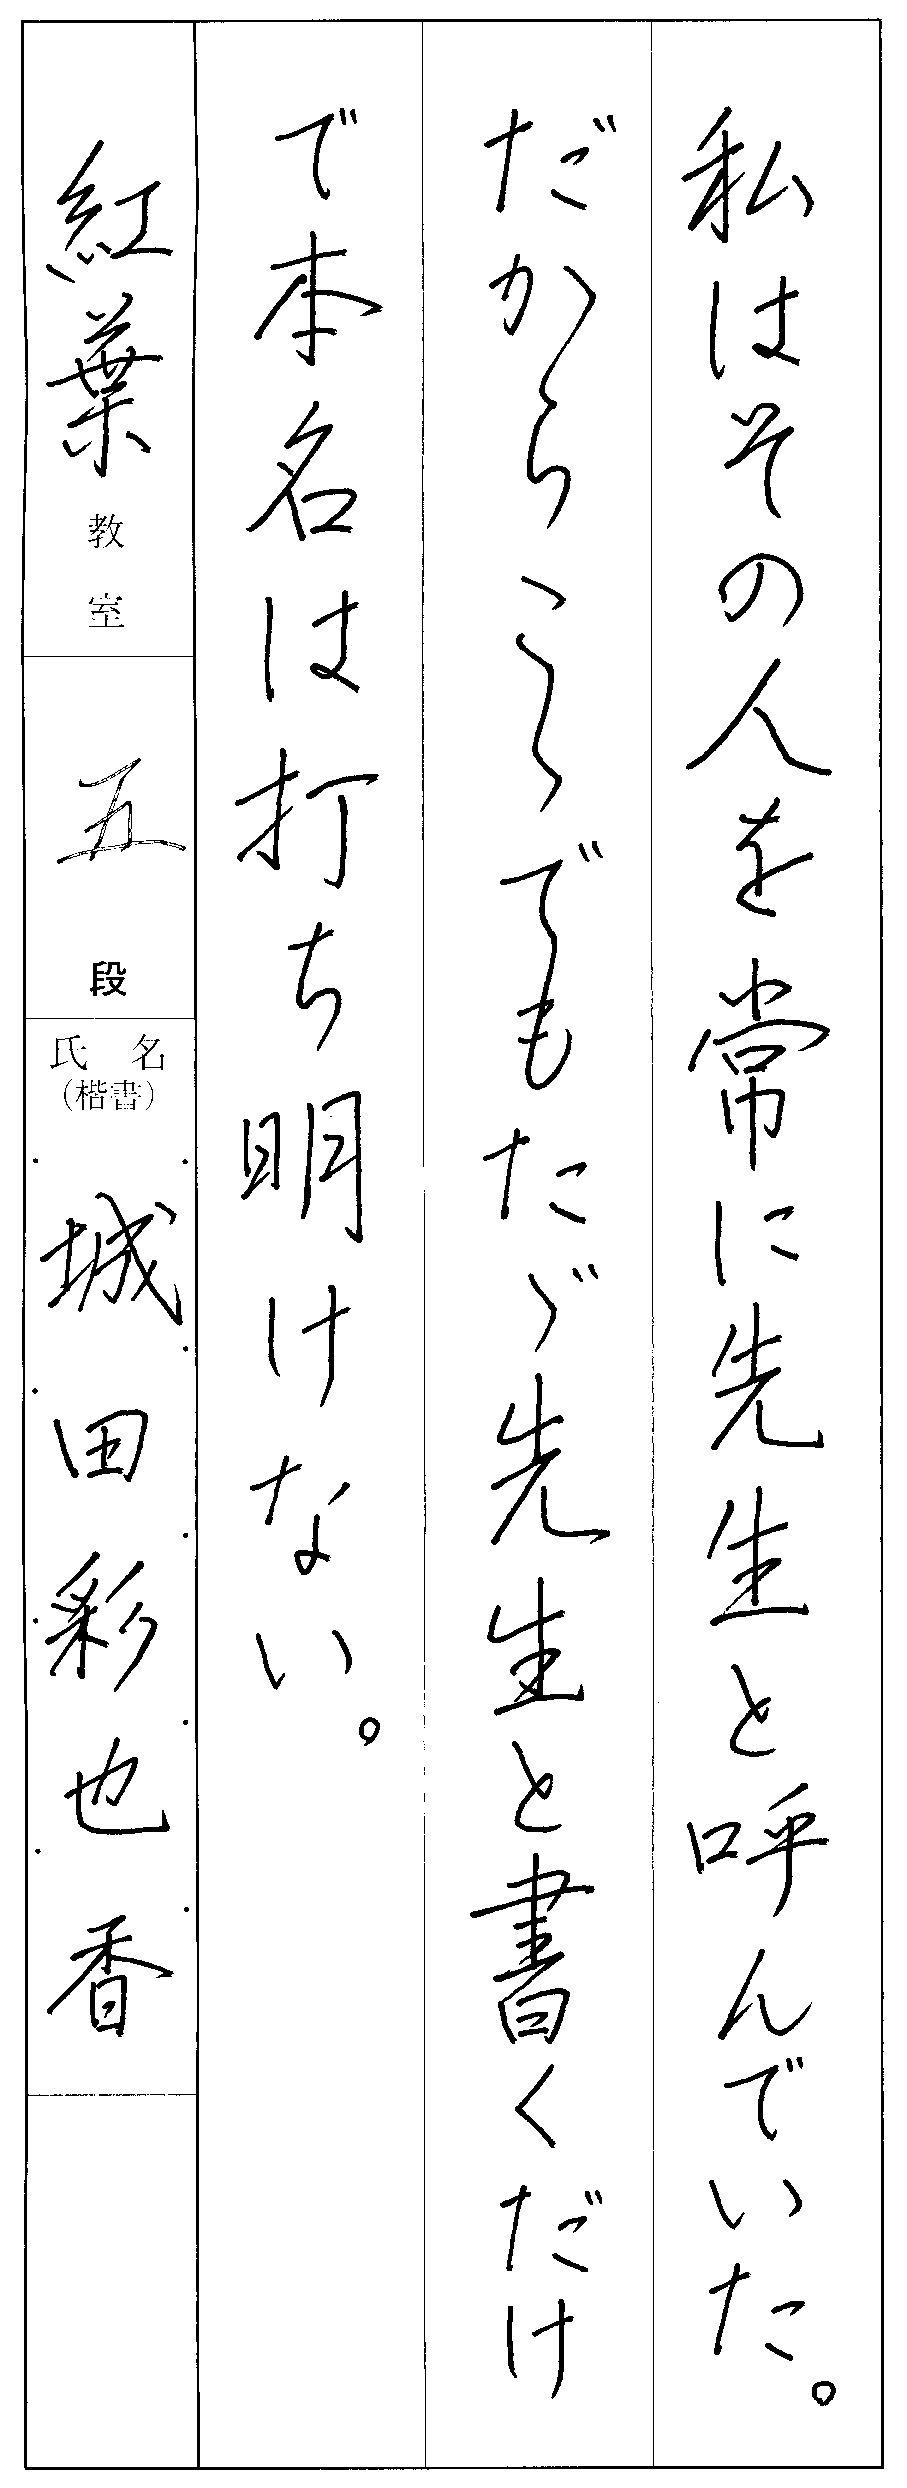 私はその人を常に先生と呼んでいた。
だからこゝでもたゞ先生と書くだけ
で本名は打ち明けない。
紅葉教室
五段
氏名
(楷書)
城田彩也香